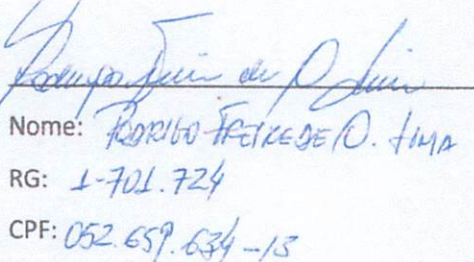 Nome: RODRIGO FREIRE DE O. LIMA
RG: 1-701.724
CPF: 052.659.634-13